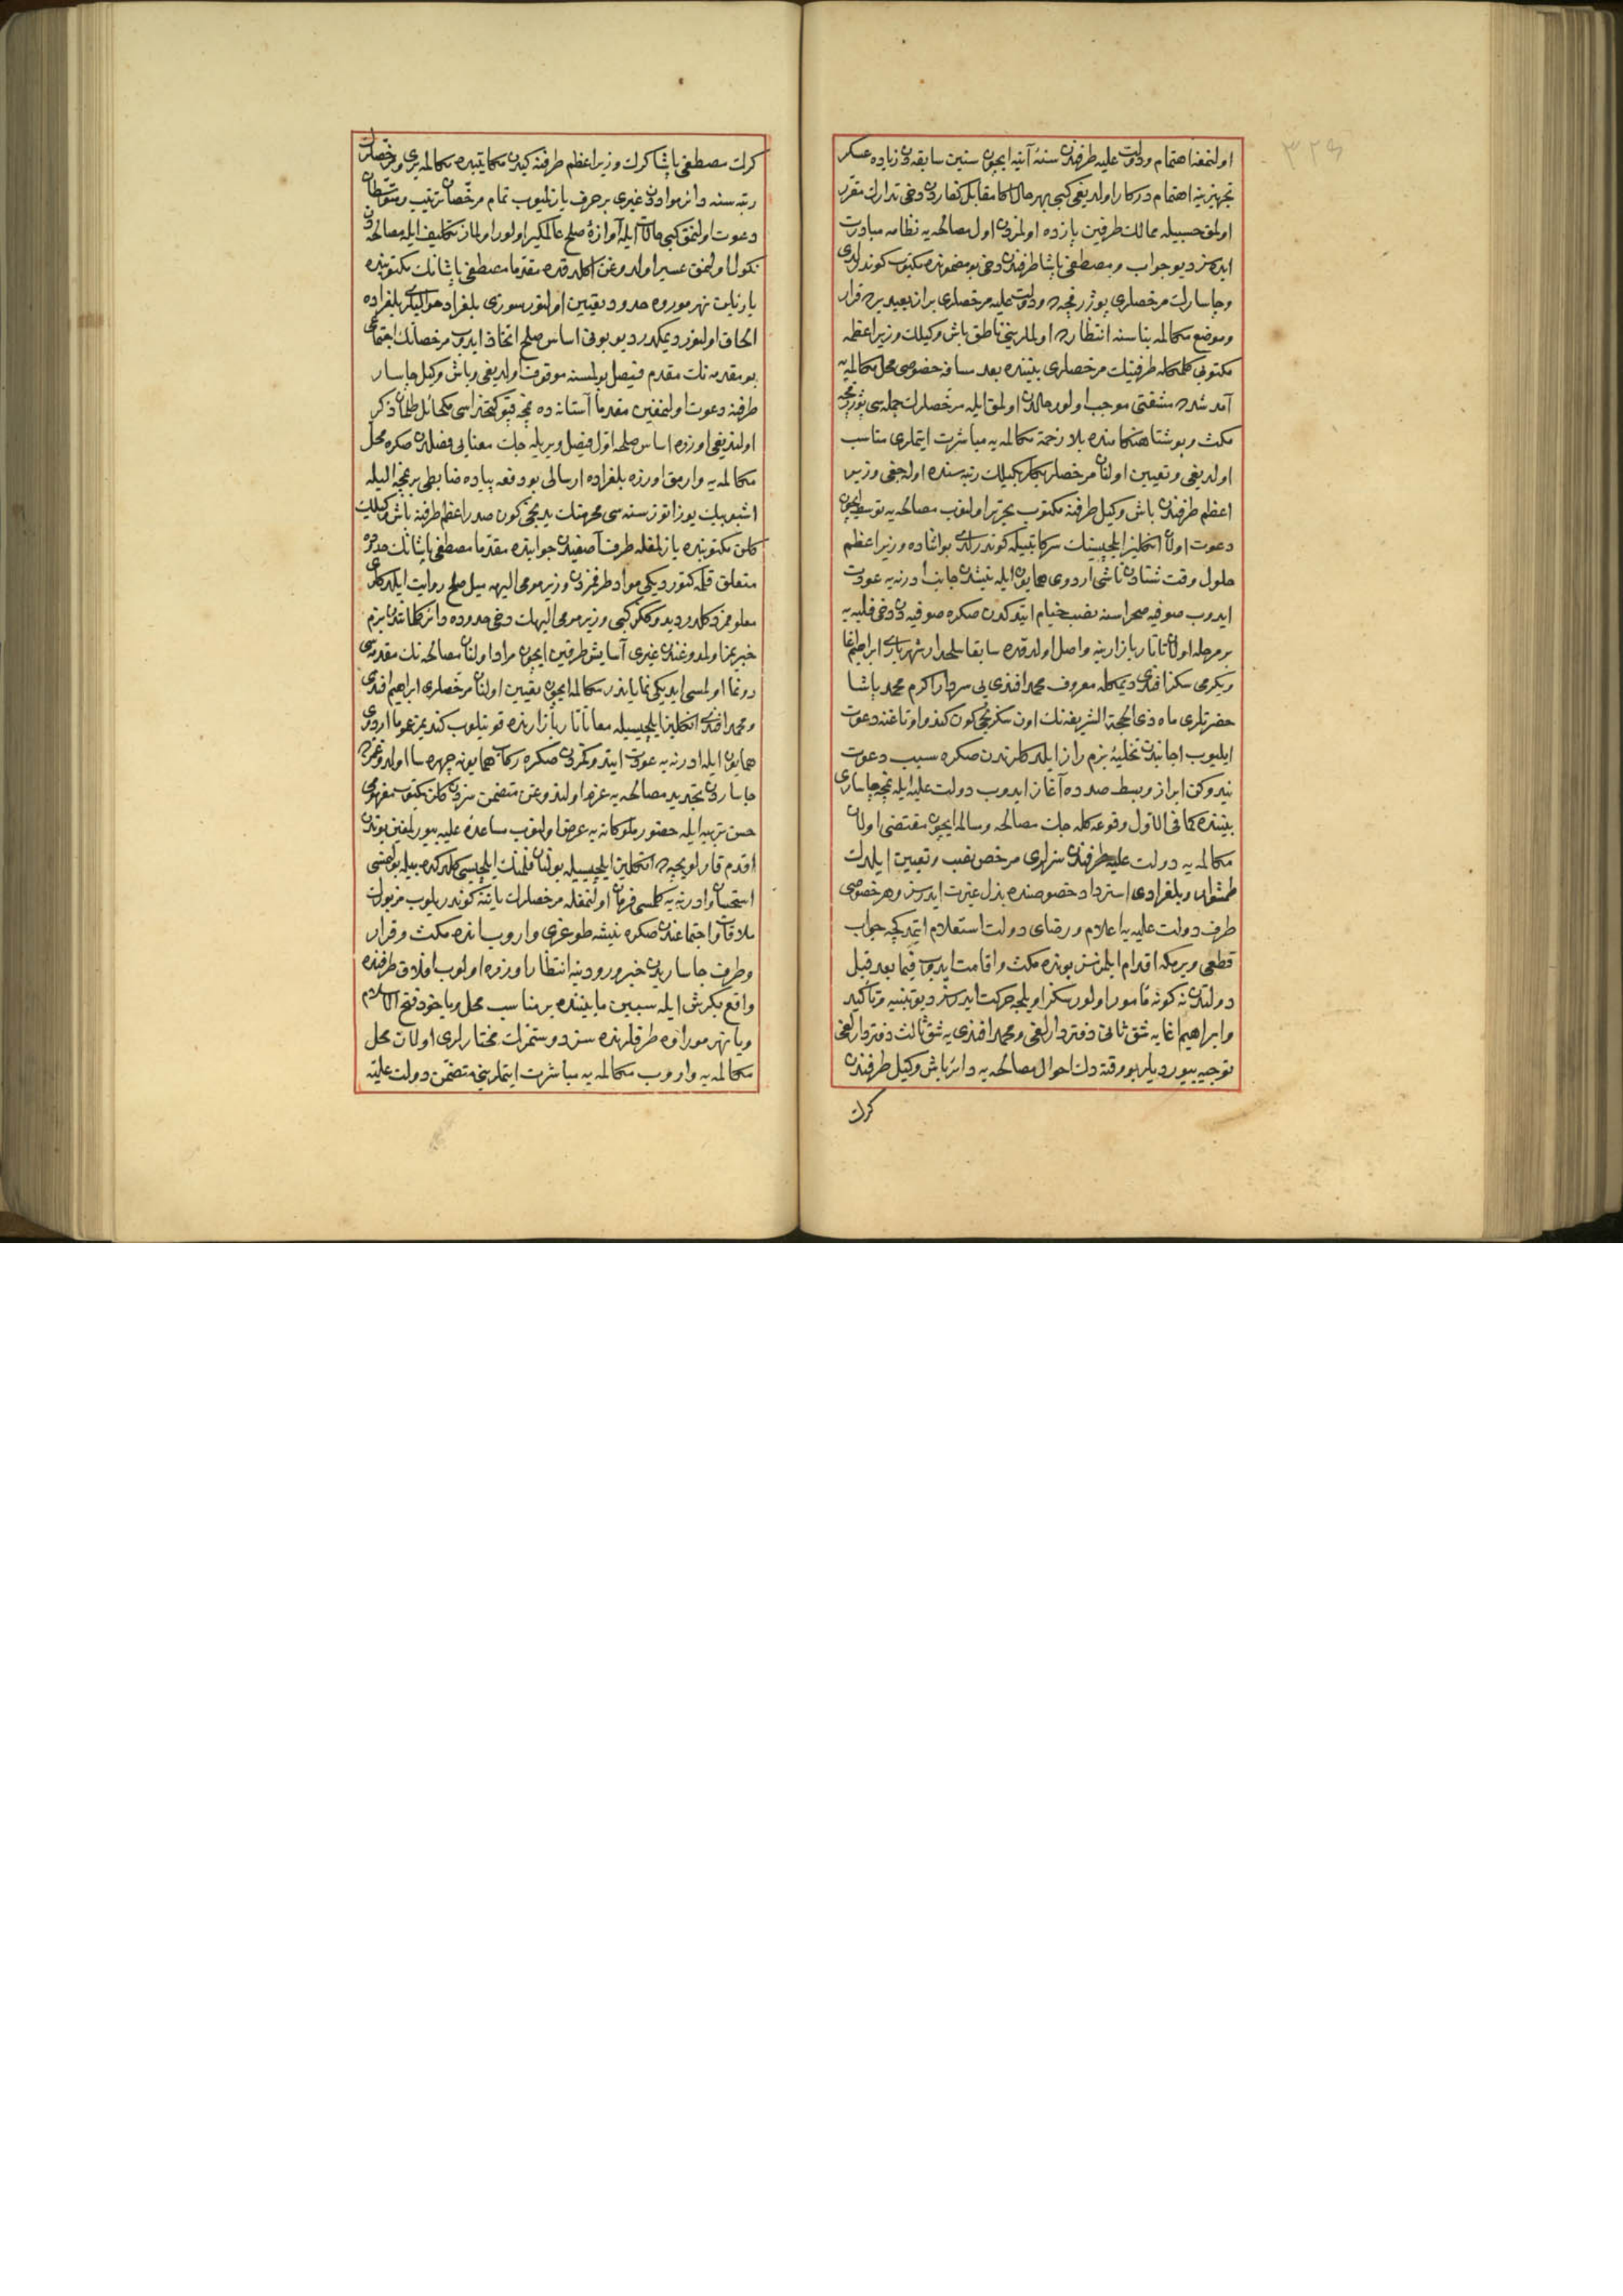 ٣٢٩
اولنمغنا اهتمام ودولت عليه طرفندن سنۀ آتيه ايچون سنين سابقه‌دن زياده عسكر
تجهيزينه اهتمام دركار اولديغى كبى بهر حال اكا مقابل كفاردن دخى تدارك مقرر
اولمق حسبيله ممالك طرفين پازده اولمزدن اول مصالحه‌يه نظامه مبادرت
ايده‌سز ديو جواب ومصطفى پاشا طرفندن دخى بو مضمونده مكتوب كوندرلدى
وچاسارك مرخصلرى پوژرفچه‌ده ودولت عليه مرخصلرى براز بعيد يرده قرار
وموضع مكالمه بناسنه انتظارده اولملرينى ناطق باش وكيلك وزير اعظمه
مكتوبى كلمكله طرفينك مرخصلرى بيننده بعد مسافه خصوصى محل مكالمه‌يه
آمد شده مشقتى موجب اولور حالدن اولمق ايله مرخصلرك جمله‌سى پوژرفچه
مكث وبو شتا هنكامنده بلا زحمة مكالمه‌يه مباشرت ايتملرى مناسب
اولديغى وتعيين اولنان مرخصلر بكلربكيلك رتبه‌سنده اوله‌جغى وزير
اعظم طرفندن باش وكيل طرفنه مكتوب تحرير اولنوب مصالحه‌يه توسط ايچون
دعوت اولنان انكليز ايلچيسينك سر كاتبيله كوندرلدى بو اثناده وزير اعظم
حلول وقت شتادن ناشى اردوى همايون ايله نيشدن جانب ادرنه‌يه عودت
ايدوب صوفيه صحراسنه نصب خيام ايتدكدن صكره صوفيه‌دن دخى فلبه‌يه
بر مرحله اولان تاتار بازارينه واصل اولدقده سابقا سلحدار شهريارى ابراهيم اغا
ويكرمى سكز افندى ديمكله معروف محمد افندى يى سردار اكرم محمد پاشا
حضرتلرى ماه ذى الحجة الشريفه‌نك اون سكزنجى كون كندو اوتاغنه دعوت
ايليوب اجانبدن تخليۀ بزم راز ايلدكلرندن صكره سبب دعوت
نيدوكن ابراز وبسط صدده آغاز ايدوب دولت عليه ايله نمچه چاسارى
بيننده كما فى الاول وقوعه كله‌جك مصالحه ومسالمه ايچون مقتضى اولان
مكالمه‌يه دولت عليه طرفندن سزلرى مرخص نصب وتعيين ايلدك
طمشوار وبلغرادى استرداد خصوصنده بذل غيرت ايده‌سز وهر خصوصى
طرف دولت عليه‌يه اعلام ورضاى دولت استعلام ايتدكچه جواب
قطعى ويرمكه اقدام ايلمه‌سز بونده مكث واقامت ايدوب فيما بعد قبل
دولتدن نه كونه مأمور اولورسكز اويلجه حركت ايده‌سز ديو تنبيه وتأكيد
وابراهيم اغايه شق ثانى دفتردارلغى ومحمد افندى‌يه شق ثالث دفتردارلغى
توجيه بيورديلر بو وقته دك احوال مصالحه‌يه دائر باش وكيل طرفندن
كرك
كرك مصطفى پاشا كرك وزير اعظم طرفنه كيدن مكاتيبده مكالمه يرى ومرخصلرك
رتبه‌سنه دائر موادن غيرى بر حرف يازلميوب تمام مرخصان ترتيب ومتوسطان
دعوت اولنمق كبى حالات ايله آوازۀ صلح عالمكير اولور اولماز تكاليف ايله مصالحه‌دن
نكول اولنمق عسير اولدوغن اكلدقده مقدما مصطفى پاشانك مكتوبنده
يازيلان نهر موروه حدود تعيين اولنور سوزى بلغراد حواليلرى بلغراده
الحاق اولنور ديمكدر ديو بونى اساس صلح اتخاذ ايدوب مرخصلرك اجتماعى
بو مقدمه‌نك مقدم فيصل بولمسنه موقوف اولديغى وباش وكيل چاسار
طرفنه دعوت اولنمغين مقدما آستانه‌ده نمچه قپو كتخداسى مكائل طلمان ذكر
اولنديغى اوزره اساس صلحه اول فيصل ويريله‌جك معنايى فصلدن صكره محل
مكالمه‌يه وارمق اوزره بلغراده ارسالى بو دفعه پياده ضابطى بر نمچه ايله
اشبو بيك يوز اتوز سنه‌سى محرمنك يدنجى كون صدر اعظم طرفنه باش وكيلك
كلن مكتوبنده يازلمغله طرف آصفيدن جوابنده مقدما مصطفى پاشانك حدوده
متعلق قلمه كتورديكى مواد طرفمزدن وزير مومى اليهه ميل صلح روايت ايلدكلرى
معلوممز دكلدر ديدوككز كبى وزير مومى اليهك دخى حدوده دائر كلماتندن بزم
خبريمز اولمدوغندن غيرى آسايش طرفين ايچون مراد اولنان مصالحه‌نك مقدمه‌سى
رونما اولمسى ايديكى نماياندر مكالمه ايچون تعيين اولنان مرخصلرى ابراهيم افندى
ومحمد افندى انكليز ايلچيسيله معا تاتار بازارنده قونيلوب كنديمز عموما اردوى
همايون ايله ادرنه‌يه عودت ايتدوكمزدن صكره ركاب همايونه چهره سا اولدوغمزده
چاساردن تجديد مصالحه‌يه عزم اولندوغن متضمن سزدن كلن مكتوب مفهومى
حسن تربيه ايله حضور ملوكانه‌يه عرض اولنوب مساعدۀ عليه بيورلمغين بوندن
اقدم قارلويچه‌ده انكليز ايلچيسيله بولنان فلمنك ايلچيسى كلدكده بيله بولنمسى
استحسان وادرنه‌يه كلمسى فرمان اولنمغله مرخصلرك ياننه كوندريلوب مزبورك
ملاقات واجتماعندن صكره نيشه طوغرى واروب انده مكث وقرار
وطرف چاساريدن خبر ورودينه انتظار اوزره اولوب افلاق طرفنده
واقع بكرش ايله سيبين مابيننده بر مناسب محل ويا خود فتح الاسلام
ويا نهر موراوه طرفلرنده سز دوستمزك مختارلرى اولان محل
مكالمه‌يه واروب مكالمه‌يه مباشرت ايتملرينى متضمن دولت عليه